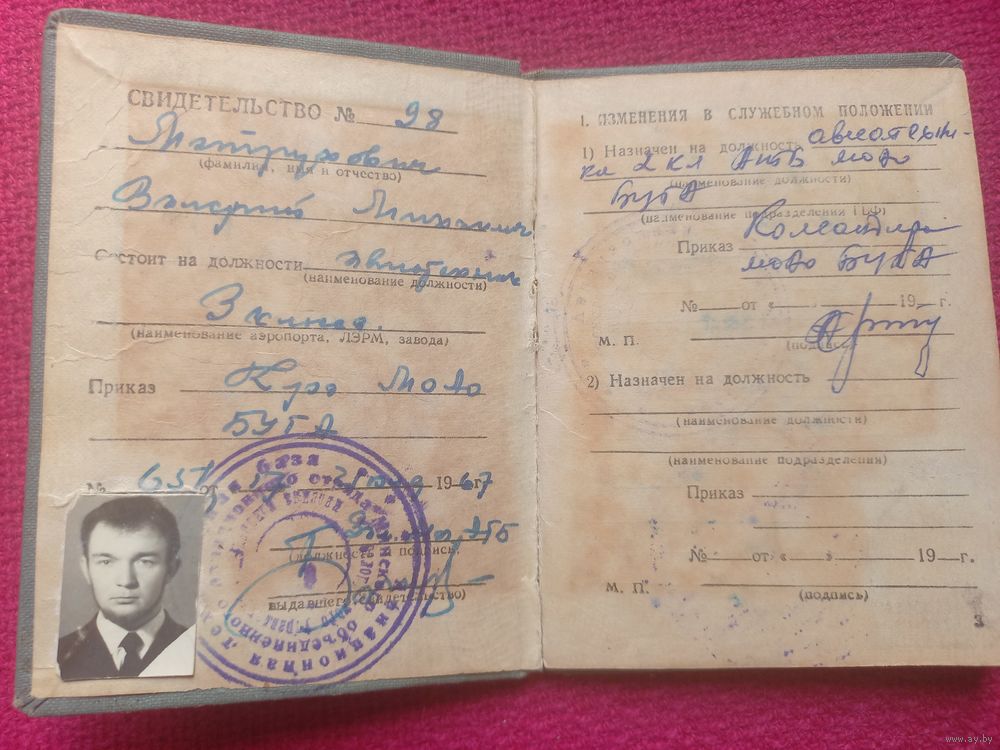 СВИДЕТЕЛЬСТВО № 98
(фамилия, имя и отчество)
Валерий
Состоит на должности авиатехник
(наименование должности)
3 класса
(наименование аэропорта, ЛЭРМ, завода)
Приказ
БУГА
№ 1967 г.
база
(должность, подпись,
выдавшего свидетельство)
1. ИЗМЕНЕНИЯ В СЛУЖЕБНОМ ПОЛОЖЕНИИ
1) Назначен на должность авиатехни-
ка 2 кл АТБ МОАО
(наименование должности)
БУГА
(наименование подразделения ГВФ)
Приказ Командира
МОАО БУГА
№ от « » 19 г.
М. П.
(подпись)
2) Назначен на должность
(наименование должности)
(наименование подразделения)
Приказ
№ от « » 19 г.
М. П.
(подпись)
www.ay.by